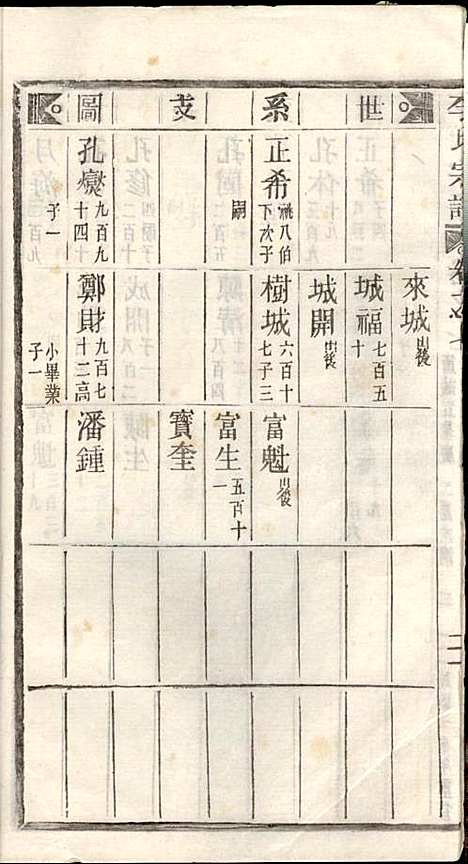 世系支圖
正希 祧八伯下次子
嗣
孔燮 九百九十四十
子一
來城 出後
城福 七百五十
城開 出後
樹城 六百十七子三
鄭財 九百七十二高
小畢業子一
富魁 出後
富生 五百十一
寶奎
潘鍾
李氏宗譜